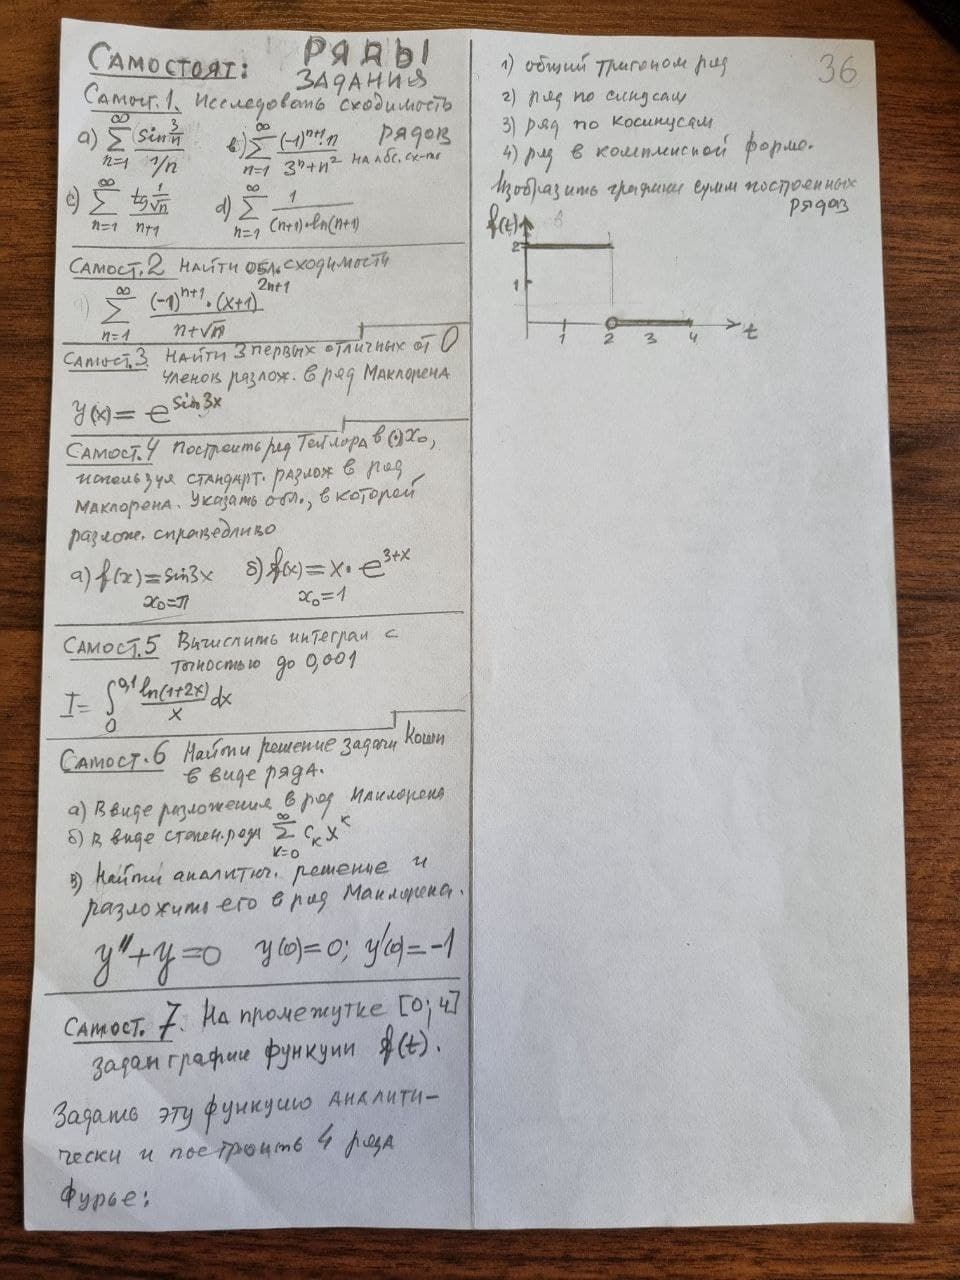 Самостоят: РЯДЫ
ЗАДАНИЯ
Самост.1. Исследовать сходимость
рядов
а) ∑_{n=1}^{∞} (sin 3/n)/(1/n) в) ∑_{n=1}^{∞} (-1)^{n+1}·n/(3^n+n^2) на абс. сх-ть
с) ∑_{n=1}^{∞} (tg 1/√n)/(n+1) d) ∑_{n=1}^{∞} 1/((n+1)·ln(n+1))
Самост.2 Найти обл. сходимость
∑_{n=1}^{∞} (-1)^{n+1}·(x+1)^{2n+1}/(n+√n)
Самост.3 Найти 3 первых отличных от 0
членов разлож. в ряд Маклорена
y(x) = e^{sin3x}
Самост.4 Построить ряд Тейлора в (·) x₀,
используя стандарт. разлож в ряд
Маклорена. Указать обл., в которой
разлож. справедливо
а) f(x) = sin3x б) f(x) = x·e^{3+x}
x₀=π x₀=1
Самост.5 Вычислить интеграл с
точностью до 0,001
I = ∫_{0}^{0,1} ln(1+2x)/x dx
Самост.6 Найти решение задачи Коши
в виде ряда.
а) В виде разложения в ряд Маклорена
б) в виде степен. ряда ∑_{k=0}^{∞} c_k x^k
в) Найти аналитич. решение и
разложить его в ряд Маклорена.
y''+y=0 y(0)=0; y'(0)=-1
Самост. 7. На промежутке [0; 4]
задан график функции f(t).
Задать эту функцию аналити-
чески и построить 4 ряда
Фурье:
36
1) общий тригоном ряд
2) ряд по синусам
3) ряд по косинусам
4) ряд в комплексной форме.
Изобразить графики сумм построенных
рядов
f(t)
2
1
1 2 3 4 t